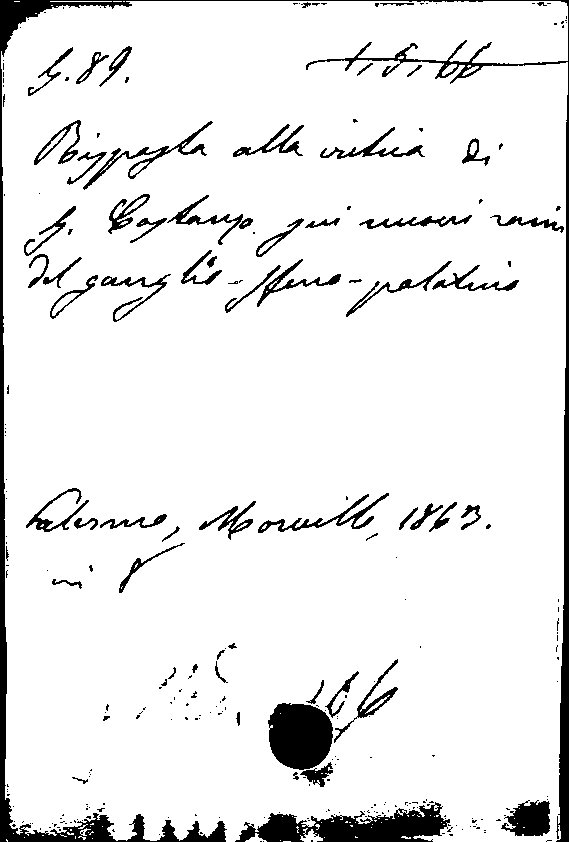 G. 89. 1, 5, 66
Risposta alla critica di
G. Costanzo sui nuovi rami
del ganglio-sfeno-palatino
Palermo, Morvillo, 1863.
in 8
Mis. 106